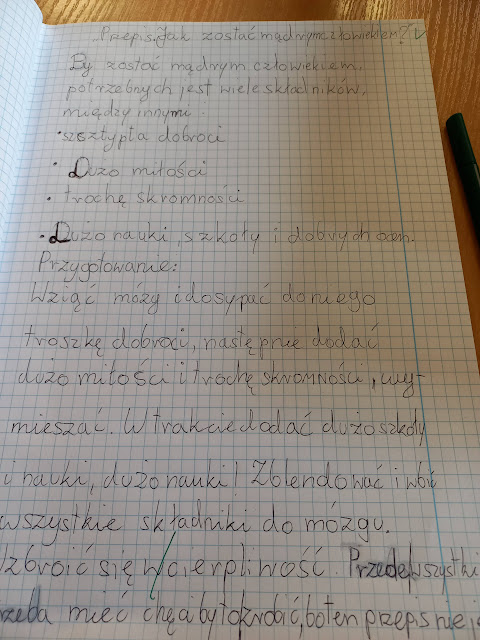 Przepis "Jak zostać mądrym człowiekiem?"
By zostać mądrym człowiekiem,
potrzebnych jest wiele składników,
między innymi:
• szsztypta dobroci
• Dużo miłości
• trochę skromności
• Dużo nauki, szkoły i dobrych ocen.
Przygotowanie:
Wziąć mózg i dosypać do niego
troszkę dobroci, następnie dodać
dużo miłości i trochę skromności, wy-
mieszać. W trakcie dodać dużo szkoły
i nauki, dużo nauki! Zblendować i wbić
wszystkie składniki do mózgu.
zbroić się w cierpliwość. Przedewszystki
rzeba mieć chęci by to zrobić, bo ten przepis nie j